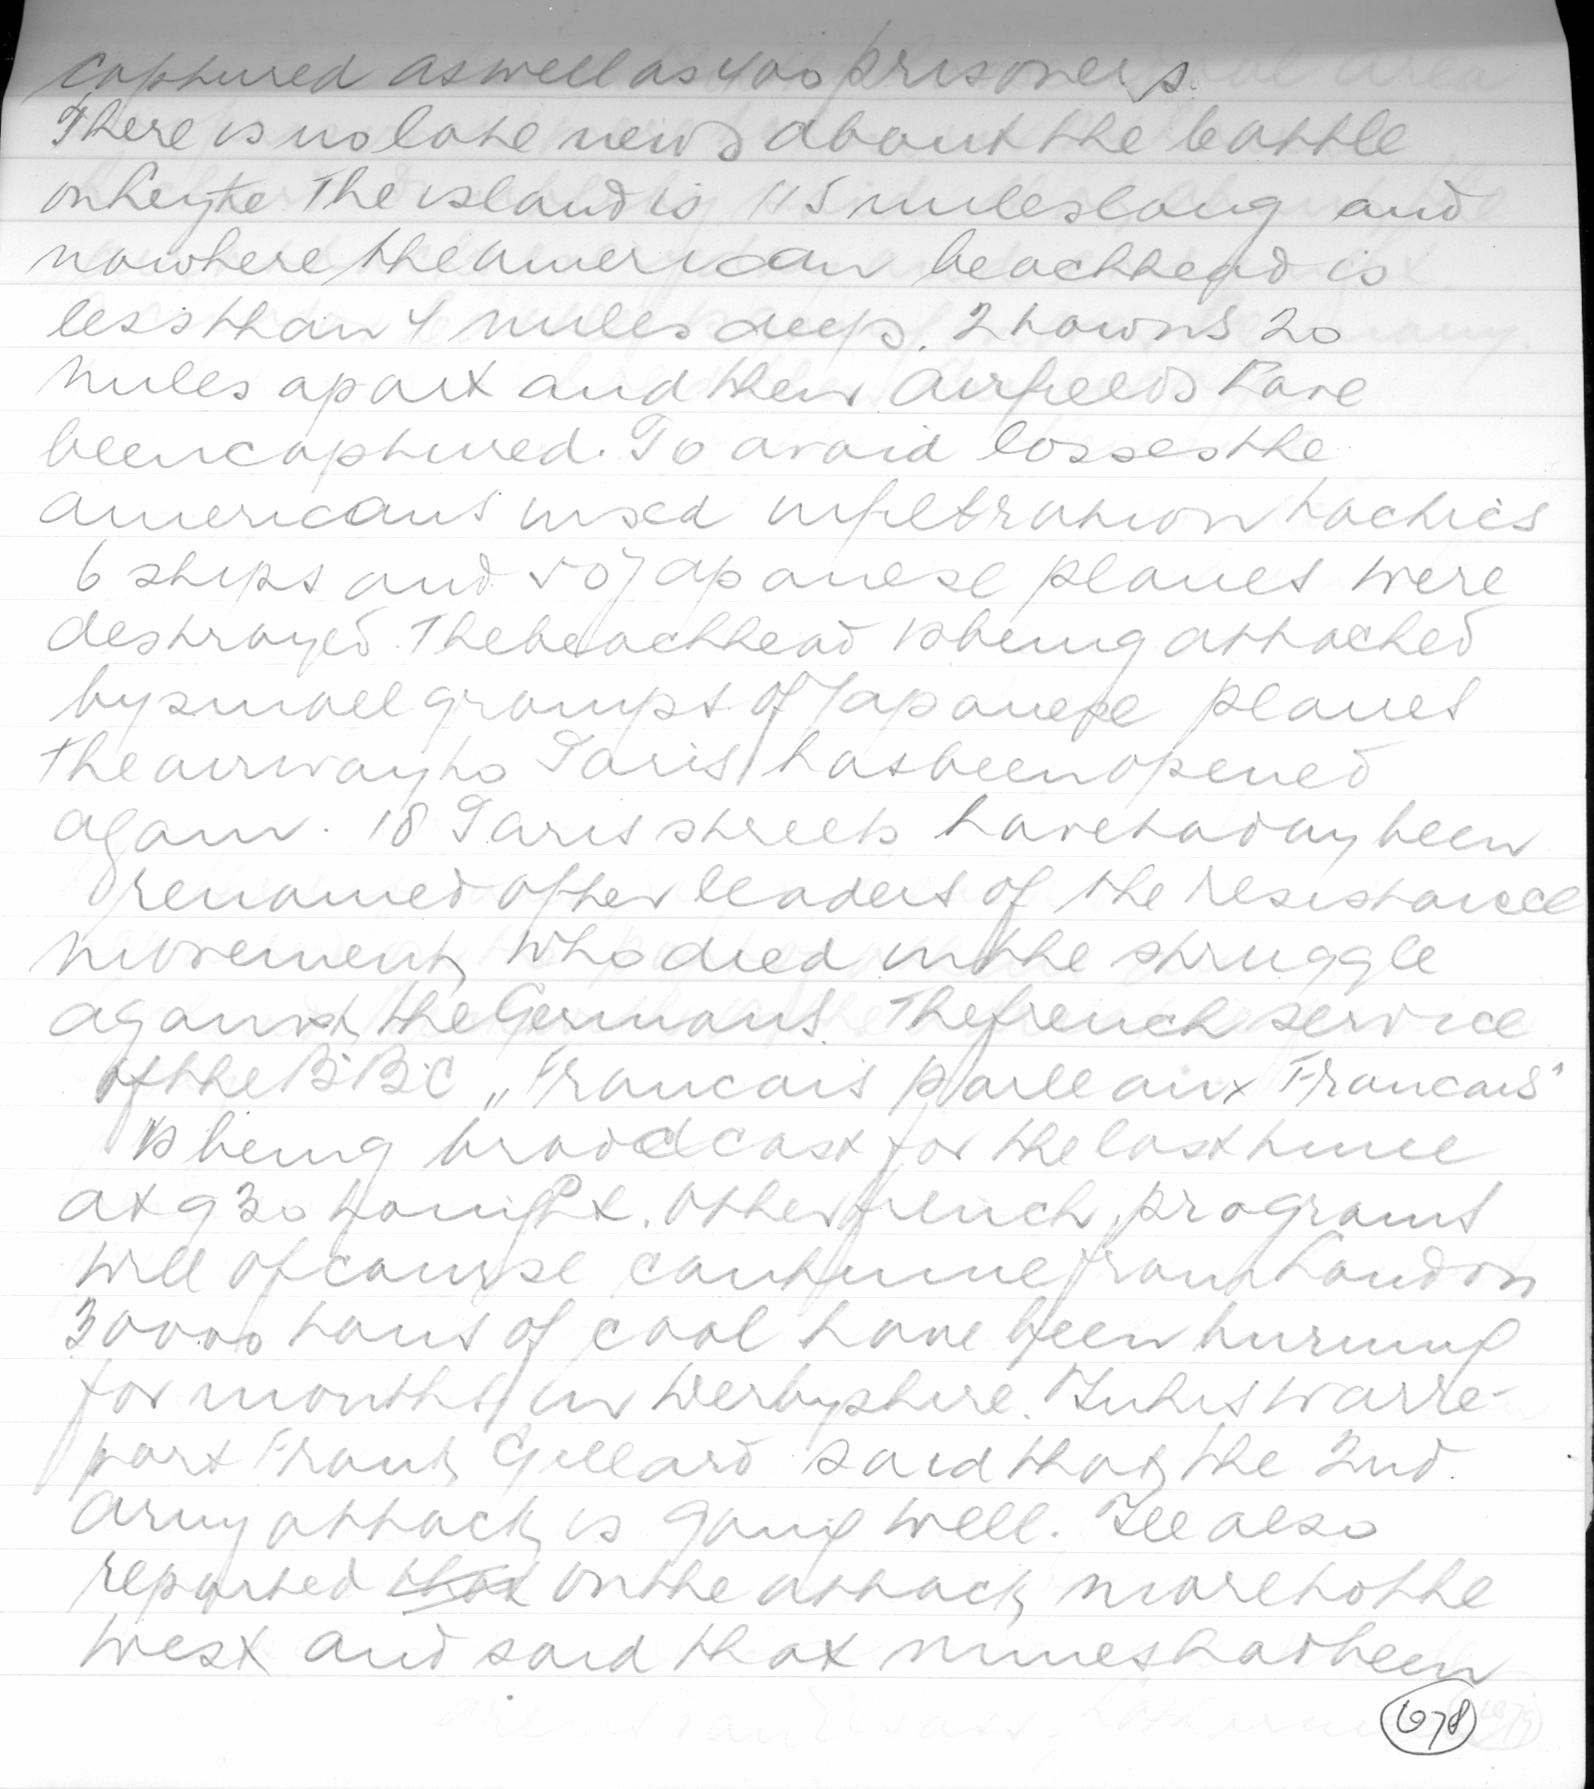 captured as well as 400 prisoners.
There is no late news about the battle
on Leyte. The island is 115 miles long and
nowhere the american beachhead is
less than 4 miles deep. 2 towns 20
miles apart and their airfields have
been captured. To avoid losses the
americans used infiltration tactics
6 ships and 50 Japanese planes were
destroyed. The beachhead is being attacked
by small groups of Japanese planes
The airway to Paris has been opened
again. 18 Paris streets have today been
renamed after leaders of the resistance
movement, who died in the struggle
against the Germans. The french service
of the BBC „Francais parle aux Francais"
is being broadcast for the last time
at 9 30 tonight. Other french programs
will of course continue from London
30000 tons of coal have been burning
for months in Derbyshire. In his warre-
port Frank Gillard said that the 2nd
army attack is going well. He also
reported that on the attack more to the
west and said that mines had been
678